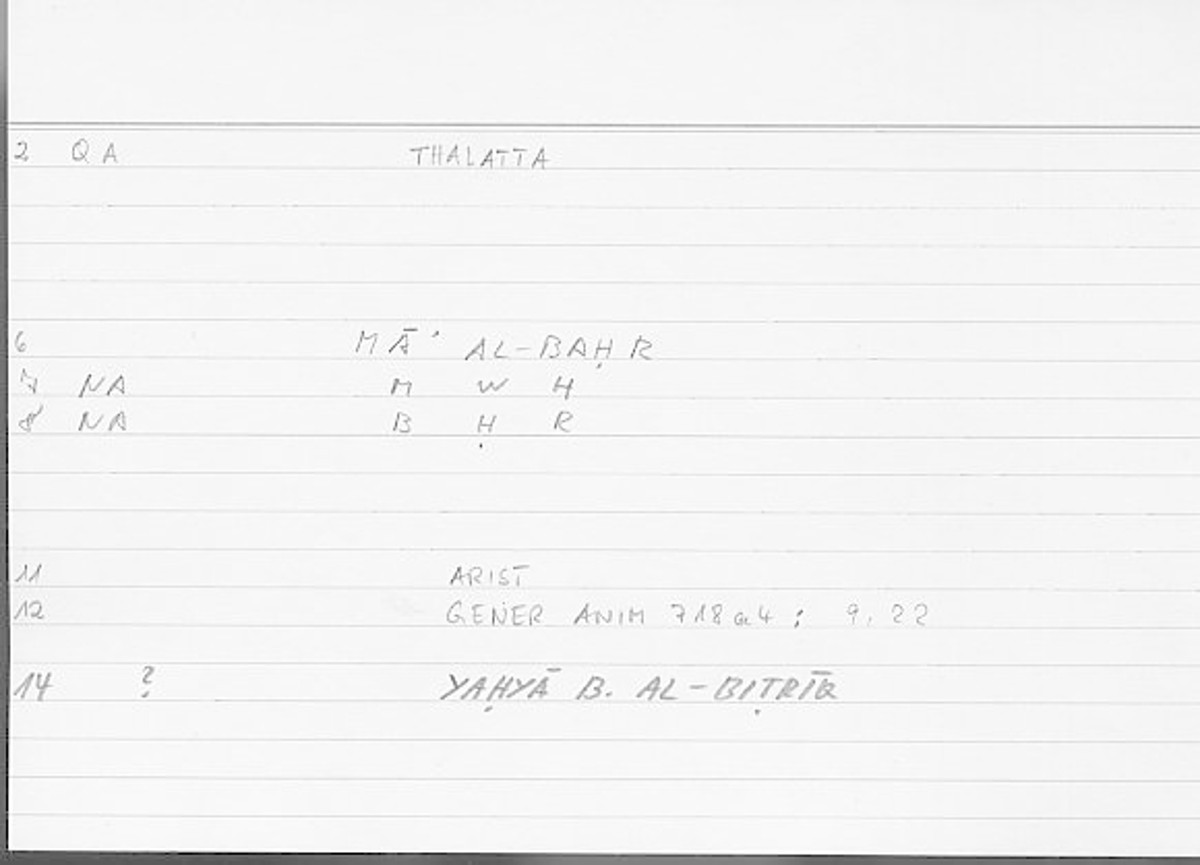 2 QA THALATTA
6 MĀʾ AL-BAḤR
7 NA M W H
8 NA B Ḥ R
11 ARIST
12 GENER ANIM 718a4 ; 9,22
14 ? YAḤYĀ B. AL-BIṬRĪQ